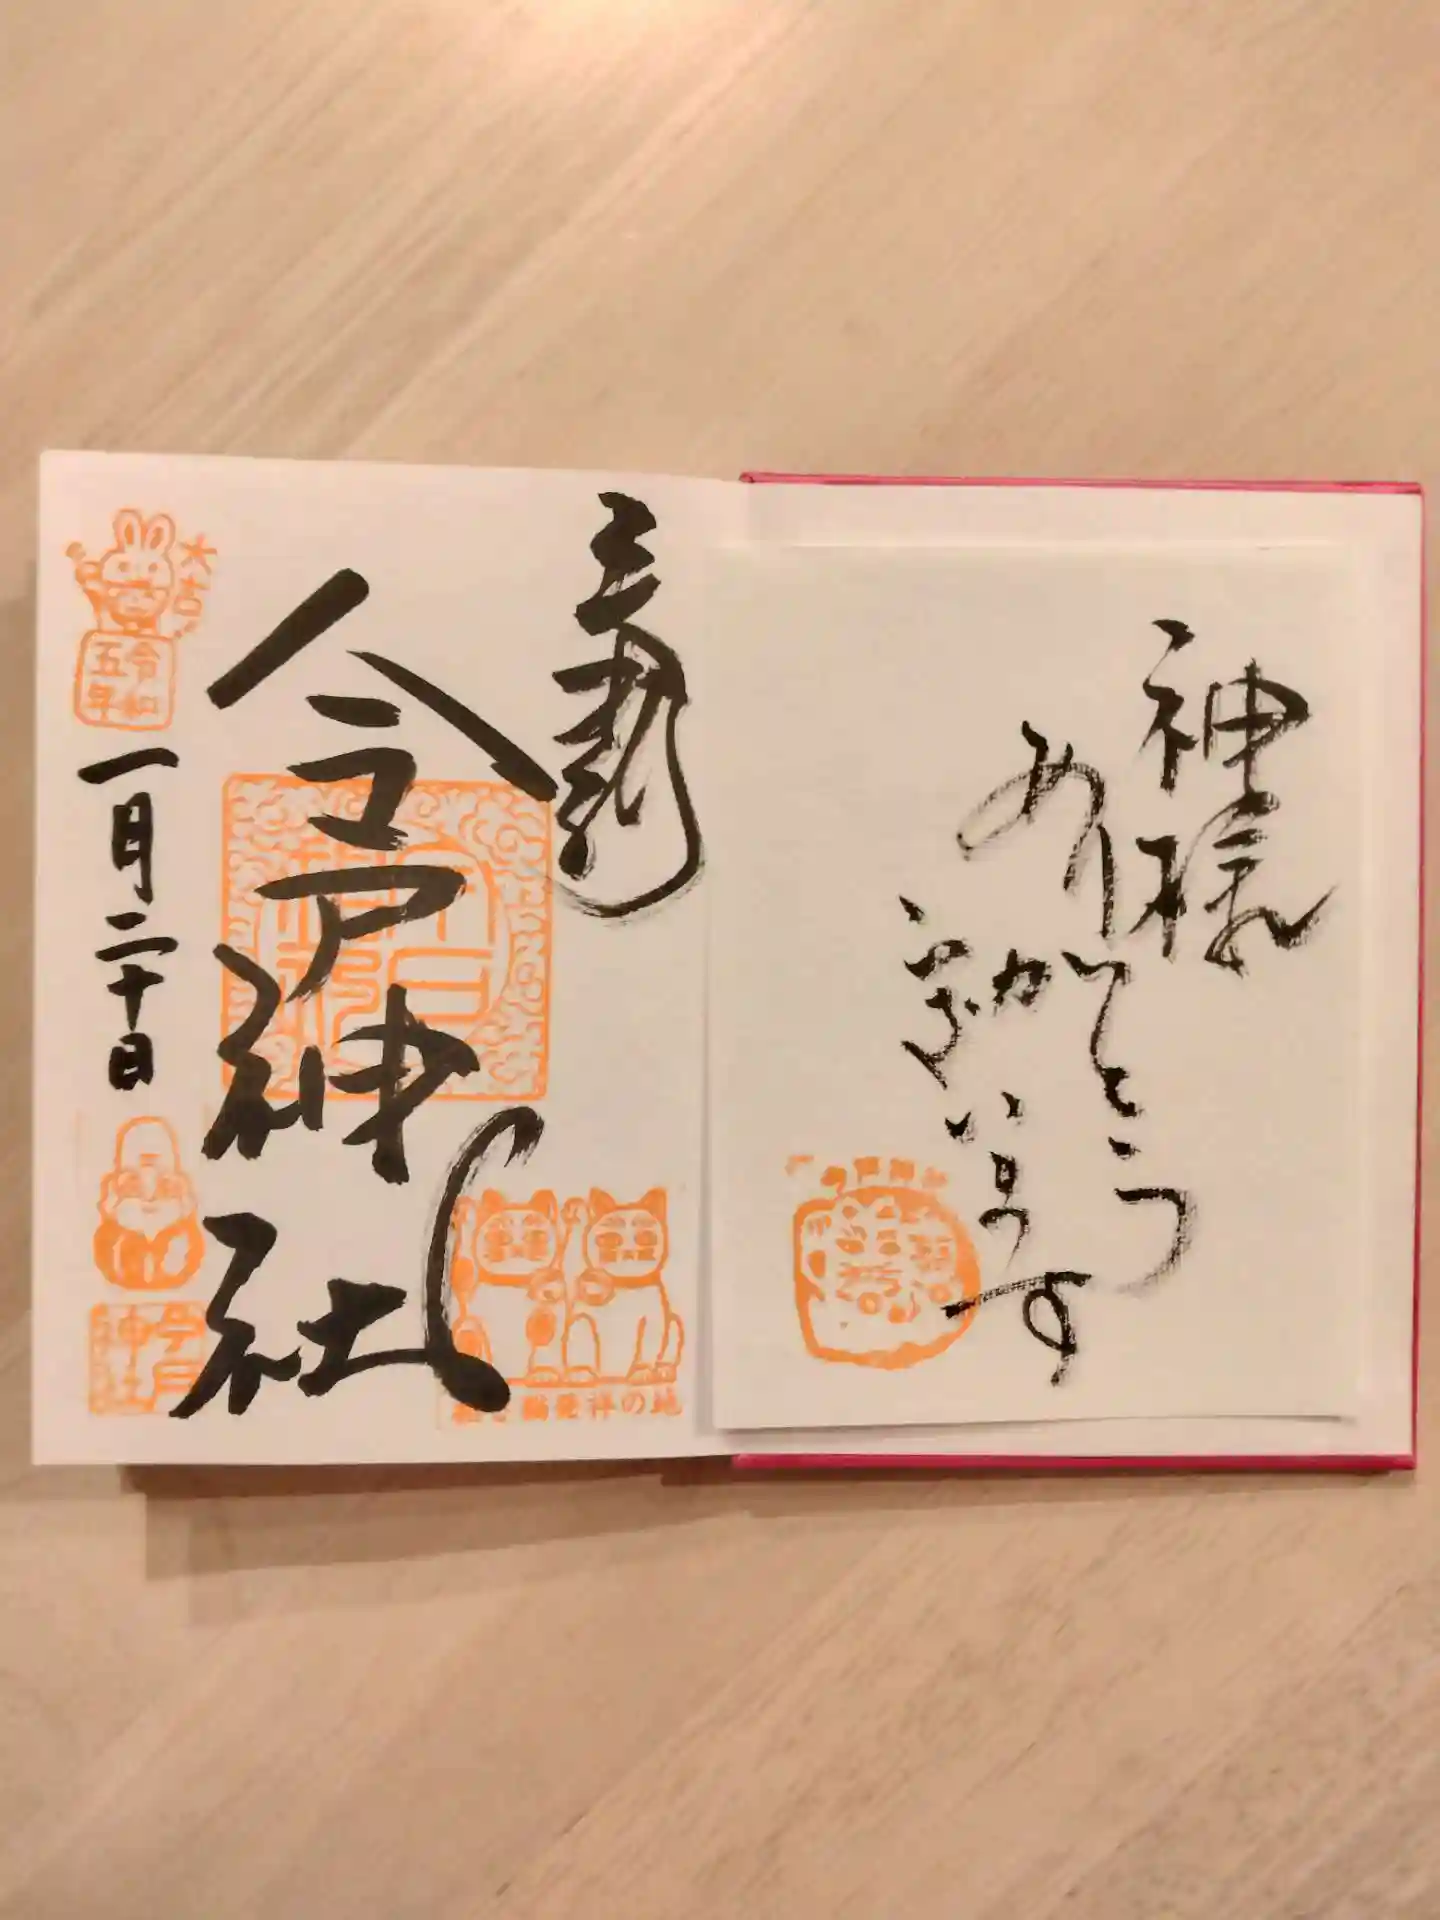 神様
ありがとう
ございます
奉拝
今戸神社
大吉
令和
五年
一月二十日
今戸
神社
招き猫発祥の地